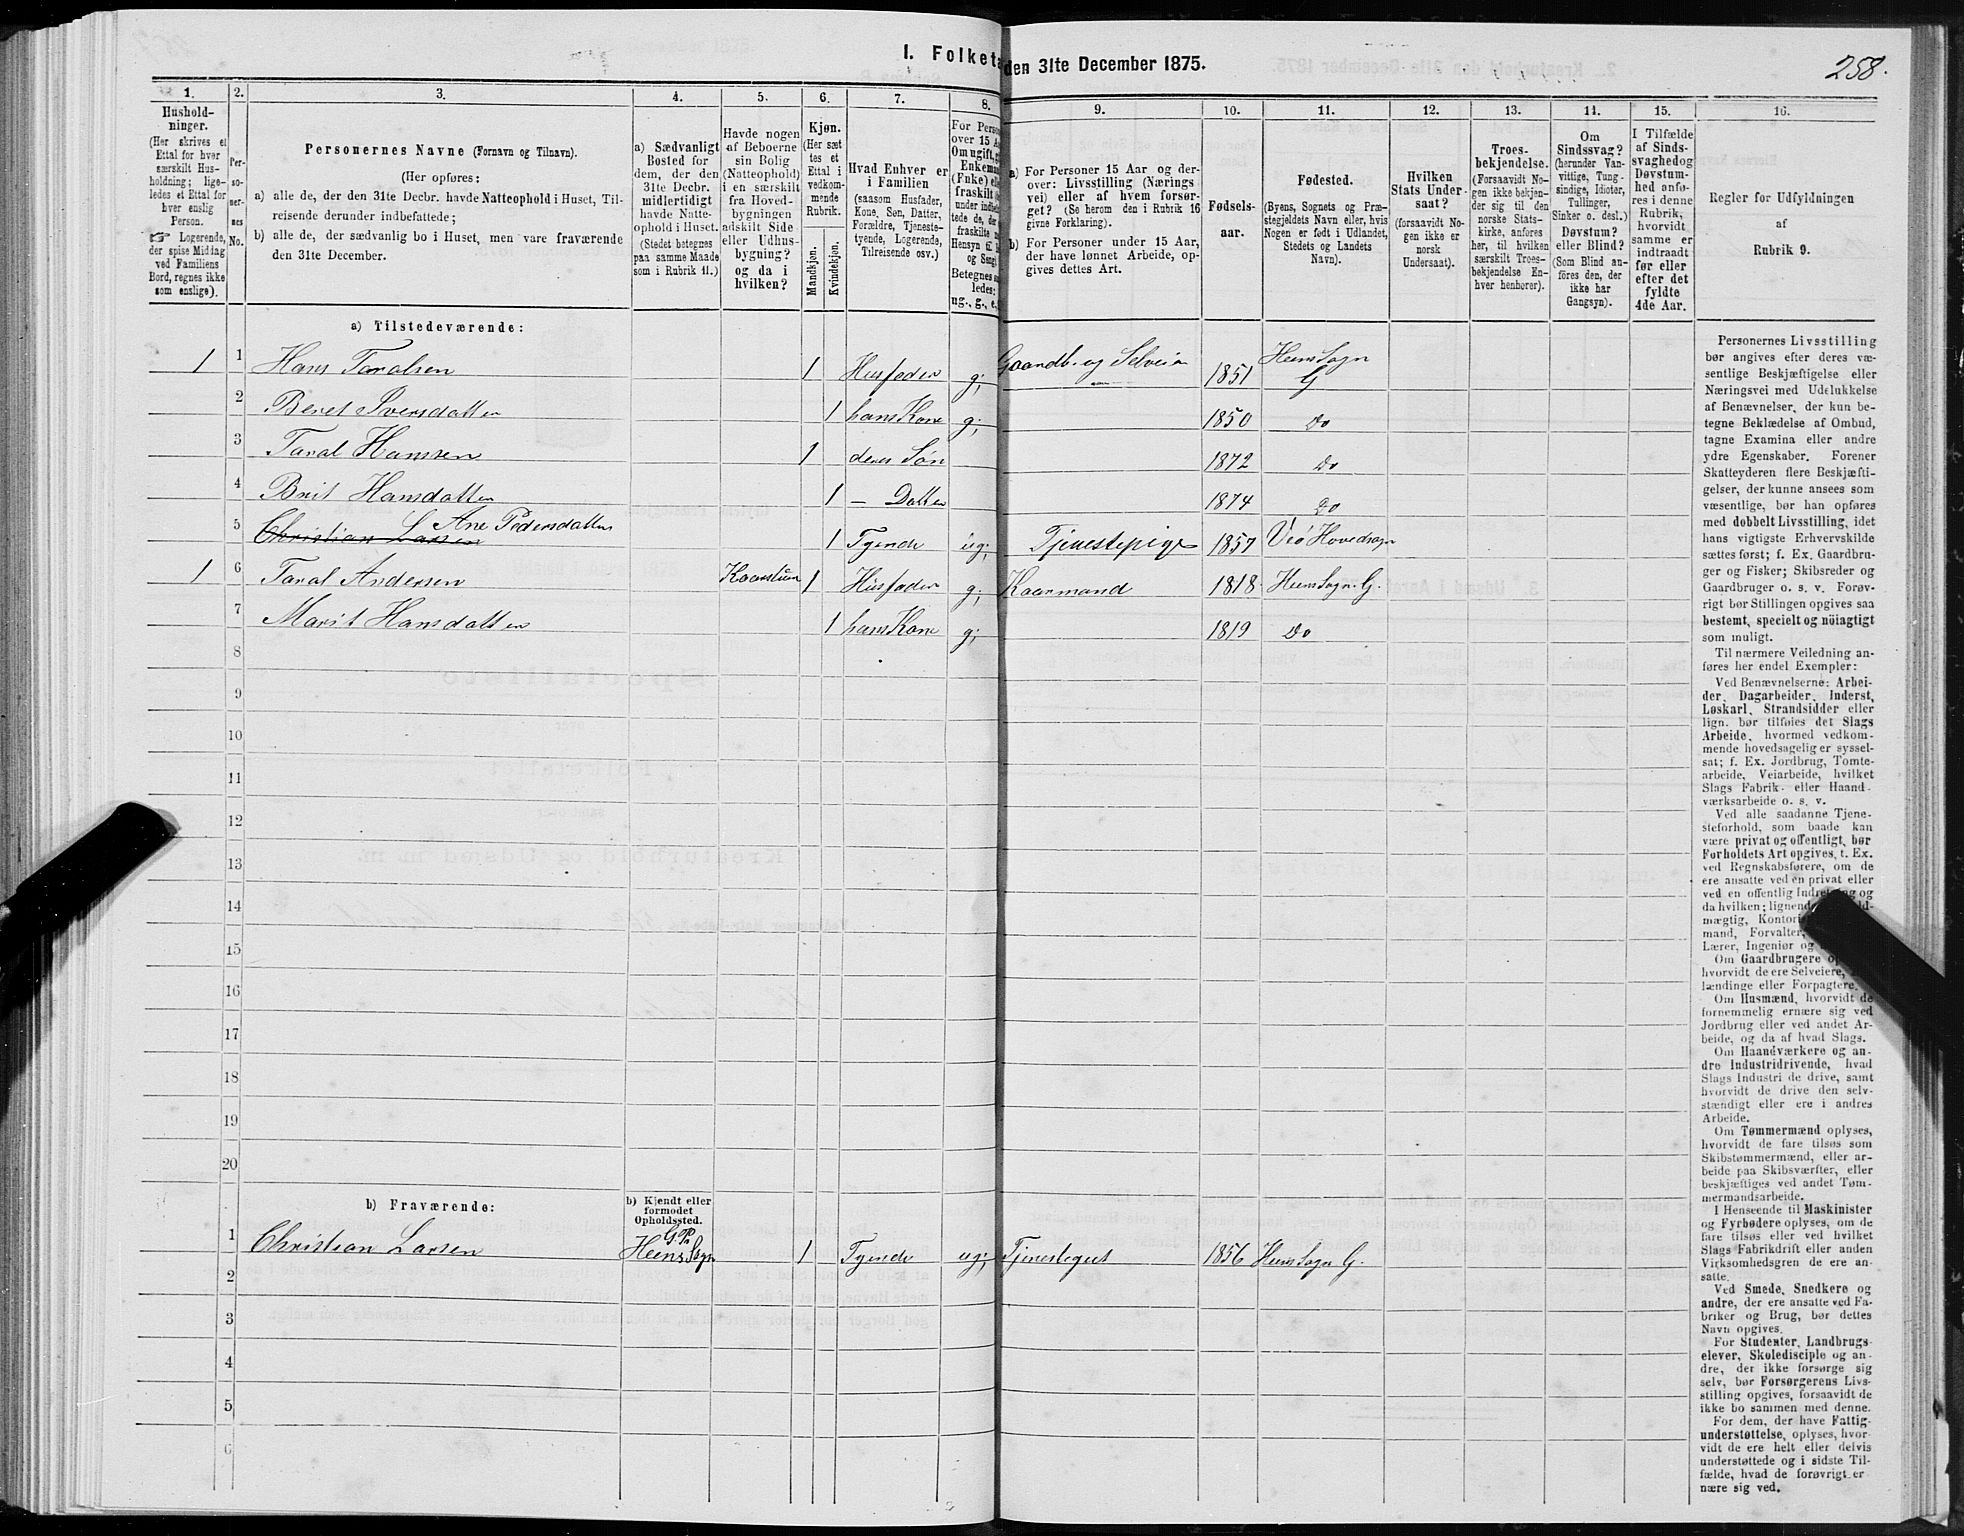 258.
I. Folketa
den 31te December 1875.
1.
2.
3.
4.
5.
6.
7.
8.
9.
10.
11.
12.
13.
14.
15.
16.
Hushold-
ninger.
(Her skrives et
Ettal for hver
særskilt Hus-
holdning; lige-
ledes et Ettal for
hver enslig
Person.
☞ Logerende,
der spise Middag
ved Familiens
Bord, regnes ikke
som enslige).
Per-
so-
ner-
nes
No.
Personernes Navne (Fornavn og Tilnavn).
(Her opføres:
a) alle de, der den 31te Decbr. havde Natteophold i Huset, Til-
reisende derunder indbefattede;
b) alle de, der sædvanlig bo i Huset, men vare fraværende
den 31te December.
a) Sædvanligt
Bosted for
dem, der den
31te Decbr.
midlertidigt
havde Natte-
ophold i Huset.
(Stedet betegnes
paa samme Maade
som i Rubrik 11.)
Havde nogen
af Beboerne
sin Bolig
(Natteophold)
i en særskilt
fra Hoved-
bygningen
adskilt Side-
eller Udhus-
bygning?
og da i
hvilken?
Kjøn.
(Her sæt-
tes et
Ettal i
vedkom-
mende
Rubrik.
Mandkjøn.
Kvindekjøn.
Hvad Enhver er
i Familien
(saasom Husfader,
Kone, Søn, Datter,
Forældre, Tjeneste-
tyende, Logerende,
Tilreisende osv.)
For Perso
over 15 A
Om ugift, g
Enkema
(Fnke) el
fraskilt
under indbe
tede de, de
fraskilte
Hensyn til
og Seng
Betegnes s
ledes:
ug., g., e.,
a) For Personer 15 Aar og der-
over: Livsstilling (Nærings
vei) eller af hvem forsør-
get? (Se herom den i Rubrik 16
givne Forklaring).
b) For Personer under 15 Aar,
der have lønnet Arbeide, op-
gives dettes Art.
Fødsels-
aar.
Fødested.
(Byens, Sognets og Præ-
stegjeldets Navn eller, hvis
Nogen er født i Udlandet,
Stedets og Landets
Navn).
Hvilken
Stats Under-
saat?
(forsaavidt No-
gen ikke er
norsk
Undersaat).
Troes-
bekjendelse.
(Forsaavidt No-
gen ikke bekjen-
der sig til den
norske Stats-
kirke, anføres
her, til hvilken
særskilt Troes-
bekjendelse En-
hver henhører).
Om
Sindssvag?
(herunder Van-
vittige, Tung-
sindige, Idioter,
Tullinger,
Sinker o. desl.)
Døvstum?
eller Blind?
(Som Blind an-
føres den, der
ikke har
Gangsyn).
I Tilfælde
af Sinds-
svaghed og
Døvstum-
hed anfø-
res i denne
Rubrik,
hvorvidt
samme er
indtraadt
før eller
efter det
fyldte
4de Aar.
Regler for Udfyldningen
af
Rubrik 9.
a) Tilstedeværende:
1 1 Hans Taralsen 1 Husfader g; Gaardb. og Selveier 1851 Hens Sogn G
2 Beret Iversdatter 1 hans Kone g; 1850 Do
3 Taral Hansen 1 deres Søn 1872 Do
4 Brit Hansdatter 1 — Datter 1874 Do
5 Christian Larsen Ane Pedersdatter 1 Tyende ug; Tjenestepige 1857 Veø Hovedsogn
1 6 Taral Andersen Kaarstuen 1 Husfader g; Kaarmand 1818 Hens Sogn G.
7 Marit Hansdatter 1 hans Kone g; 1819 Do
8
9
10
11
12
13
14
15
16
17
18
19
20
b) Fraværende:
b) Kjendt eller
formodet
Opholdssted.
1 Christian Larsen G. P. Hens Sogn 1 Tyende ug; Tjenestegut 1856 Hens Sogn G.
2
3
4
5
6
Personernes Livsstilling
bør angives efter deres væ-
sentlige Beskjæftigelse eller
Næringsvei med Udelukkelse
af Benævnelser, der kun be-
tegne Beklædelse af Ombud,
tagne Examina eller andre
ydre Egenskaber. Forener
Skatteyderen flere Beskjæfti-
gelser, der kunne ansees som
væsentlige, bør han opføres
med dobbelt Livsstilling, idet
hans vigtigste Erhvervskilde
sættes først; f. Ex. Gaardbru-
ger og Fisker; Skibsreder og
Gaardbruger o. s. v. Forøv-
rigt bør Stillingen opgives saa
bestemt, specielt og nöiagtigt
som muligt.
Til nærmere Veiledning an-
føres her endel Exempler:
Ved Benævnelserne: Arbei-
der, Dagarbeider, Inderst,
Løskarl, Strandsidder eller
lign. bør tilføies det Slags
Arbeide, hvormed vedkom-
mende hovedsagelig er syssel-
sat; f. Ex. Jordbrug, Tomte-
arbeide, Veiarbeide, hvilket
Slags Fabrik- eller Haand-
værksarbeide o. s. v.
Ved alle saadanne Tjene-
steforhold, som baade kan
være privat og offentligt, bør
Forholdets Art opgives, t. Ex.
ved Regnskabsførere, om de
ere ansatte ved en privat eller
ved en offentlig Indretning og
da hvilken; lignend
mægtig, Kontori
mand, Forvalter,
Lærer, Ingeniør og
Om Gaardbrugere op
hvorvidt de ere Selveiere,
lændinge eller Forpagtere.
Om Husmænd, hvorvidt de
fornemmelig ernære sig ved
Jordbrug eller ved andet Ar-
beide, og da af hvad Slags.
Om Haandværkere og an-
dre Industridrivende, hvad
Slags Industri de drive, samt
hvorvidt de drive den selv-
stændigt eller ere i andres
Arbeide.
Om Tømmermænd oplyses,
hvorvidt de fare tilsøs som
Skibstømmermænd, eller ar-
beide paa Skibsværfter, eller
beskjæftiges ved andet Tøm-
mermandsarbeide.
I Henseende til Maskinister
og Fyrbødere oplyses, om de
fare tilsøs eller ved hvilket
Slags Fabrikdrift eller anden
Virksomhedsgren de ere an-
satte.
Ved Smede, Snedkere og
andre, der ere ansatte ved Fa-
briker og Brug, bør dettes
Navn opgives.
For Studenter, Landbrugs-
elever, Skoledisciple og an-
dre, der ikke forsørge sig
selv, bør Forsørgerens Livs-
stilling opgives, forsaavidt de
ikke bo sammen med denne.
For dem, der have Fattig-
understøttelse, oplyses, hvor-
vidt de ere helt eller delvis
understøttede og i sidste Til-
fælde, hvad de forøvrigt er-
nære sig ved.